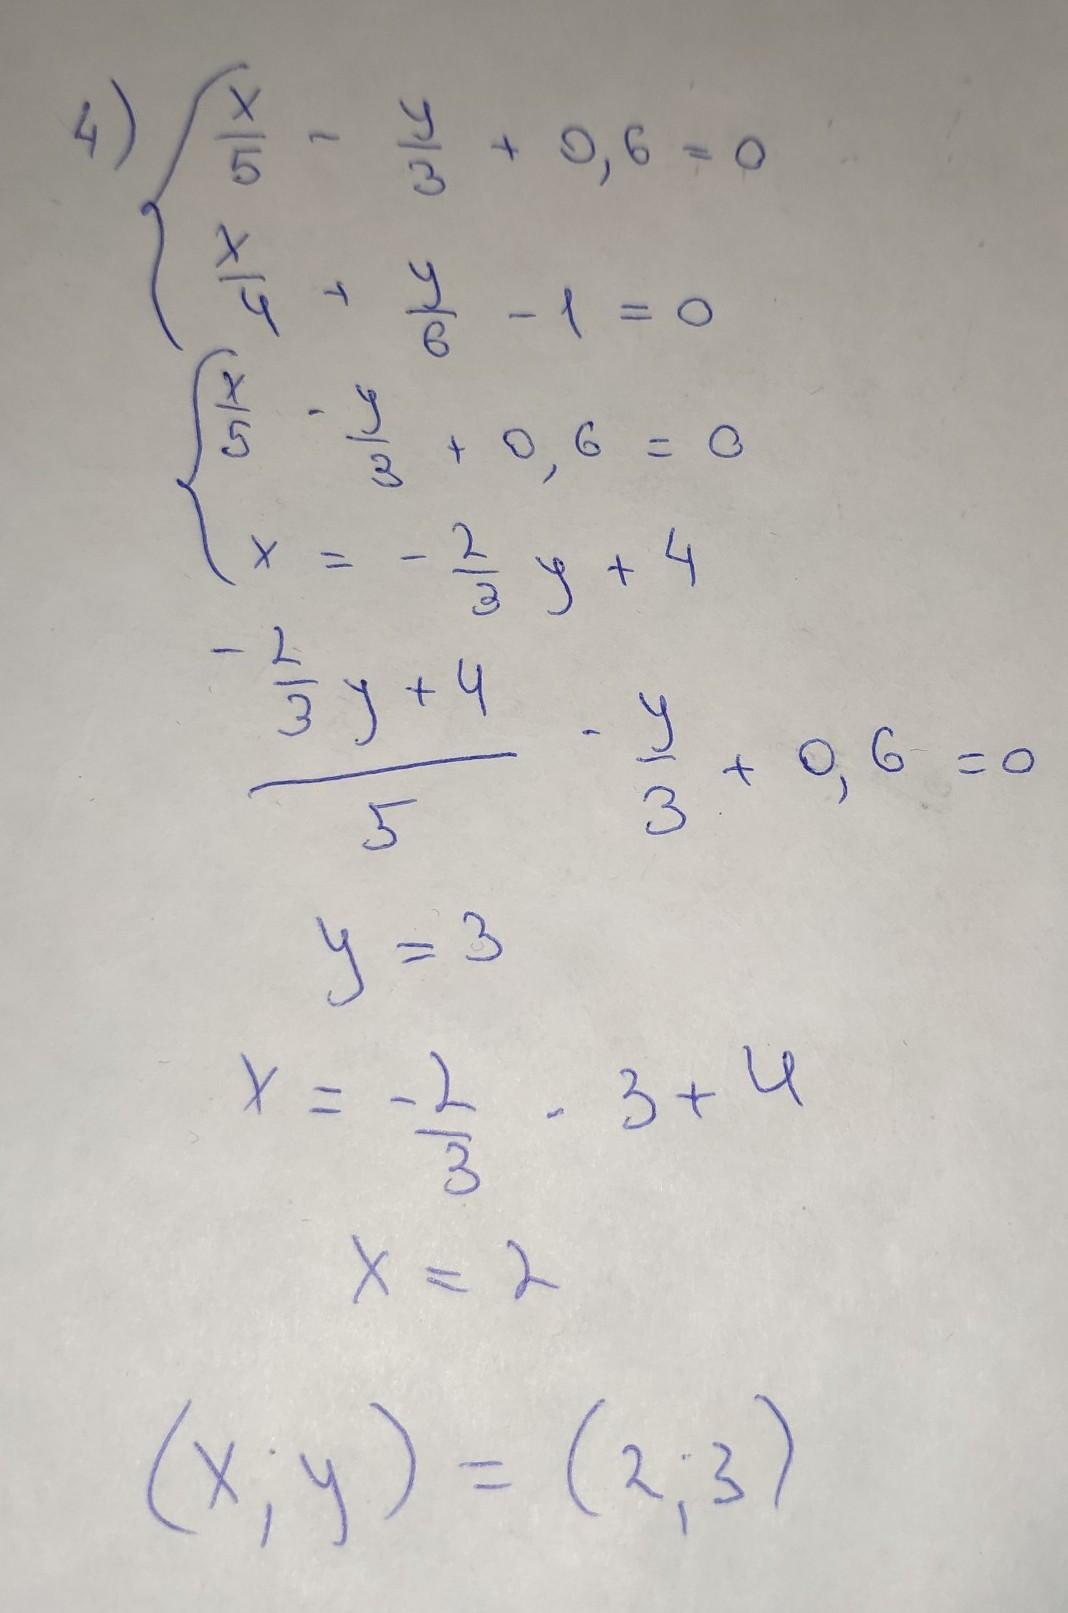 4) { x/5 - y/3 + 0,6 = 0
x/4 + y/6 - 1 = 0
{ x/5 - y/3 + 0,6 = 0
x = - 2/3 y + 4
(- 2/3 y + 4)/5 - y/3 + 0,6 = 0
y = 3
x = - 2/3 · 3 + 4
x = 2
(x; y) = (2; 3)